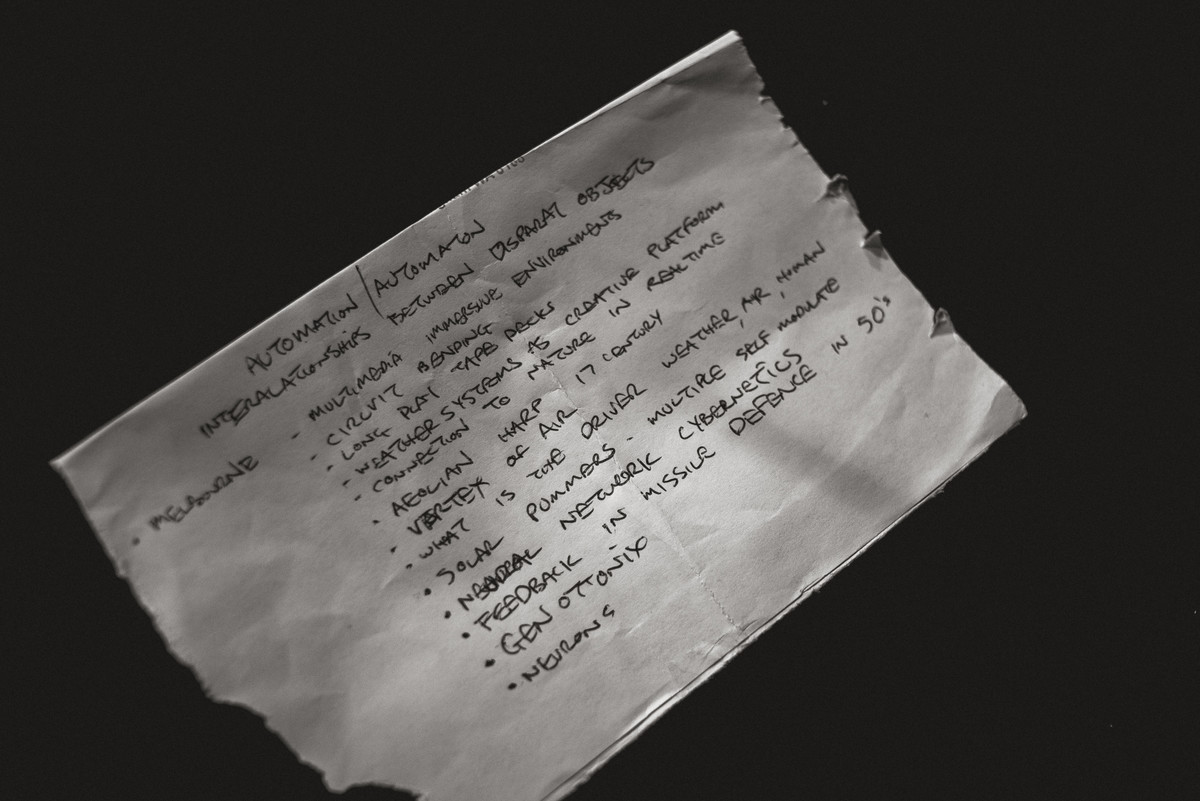 AUTOMATION / AUTOMATON
INTERALATIONSHIPS BETWEEN DISPARAT OBJECTS
• MELBOURNE
- MULTIMEDIA IMMERSIVE ENVIRONMENTS
• CIRCUIT BENDING
• LONG PLAY TAPE DECKS
• WEATHER SYSTEMS AS CREATIVE PLATFORM
• CONNECTION TO NATURE IN REALTIME
• AEOLIAN HARP 17 CENTURY
• VERTEX OF AIR
• WHAT IS THE DRIVER WEATHER, AIR, HUMAN
• SOLAR PUMMERS - MULTIPLE SELF MODULATE
• NEURAL NETWORK CYBERNETICS
• FEEDBACK IN MISSILE DEFENCE IN 50's
• GEN OTTONIX
• NEURONS